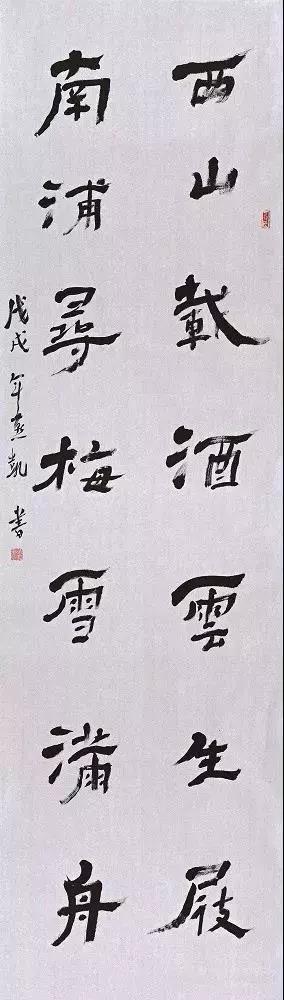 西山載酒雲生屐
南浦尋梅雪滿舟
戊戌年燕凱書